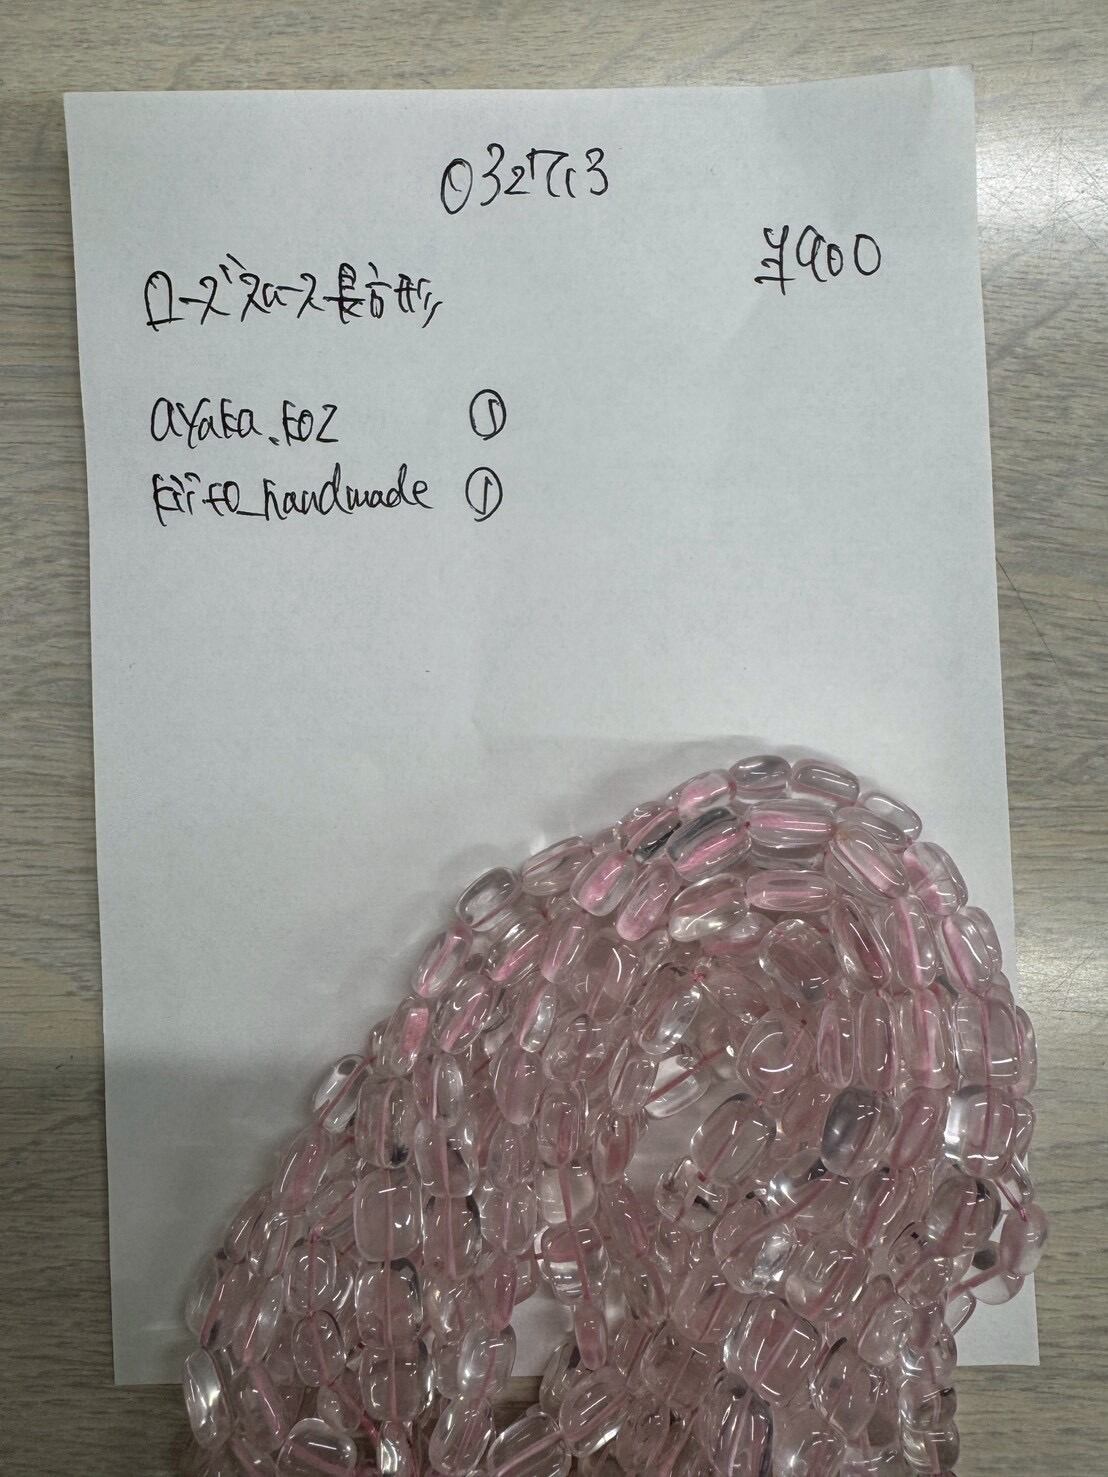 032713
¥900
ローズスロース長方形
ayaka.koz ①
kiito_handmade ①